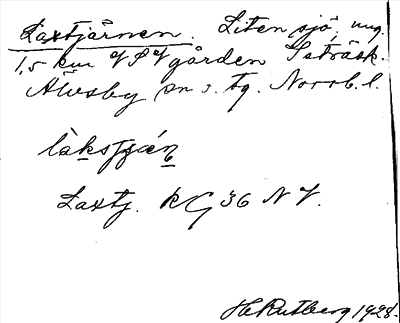 Laxtjärnen. Liten sjö, ung.
1,5 km VSV gården Isträsk.
Älvsby sn o. tg. Norrb. l.
làkstjǽn
Laxtj. KG 36 NV.
H Rutberg 1928.